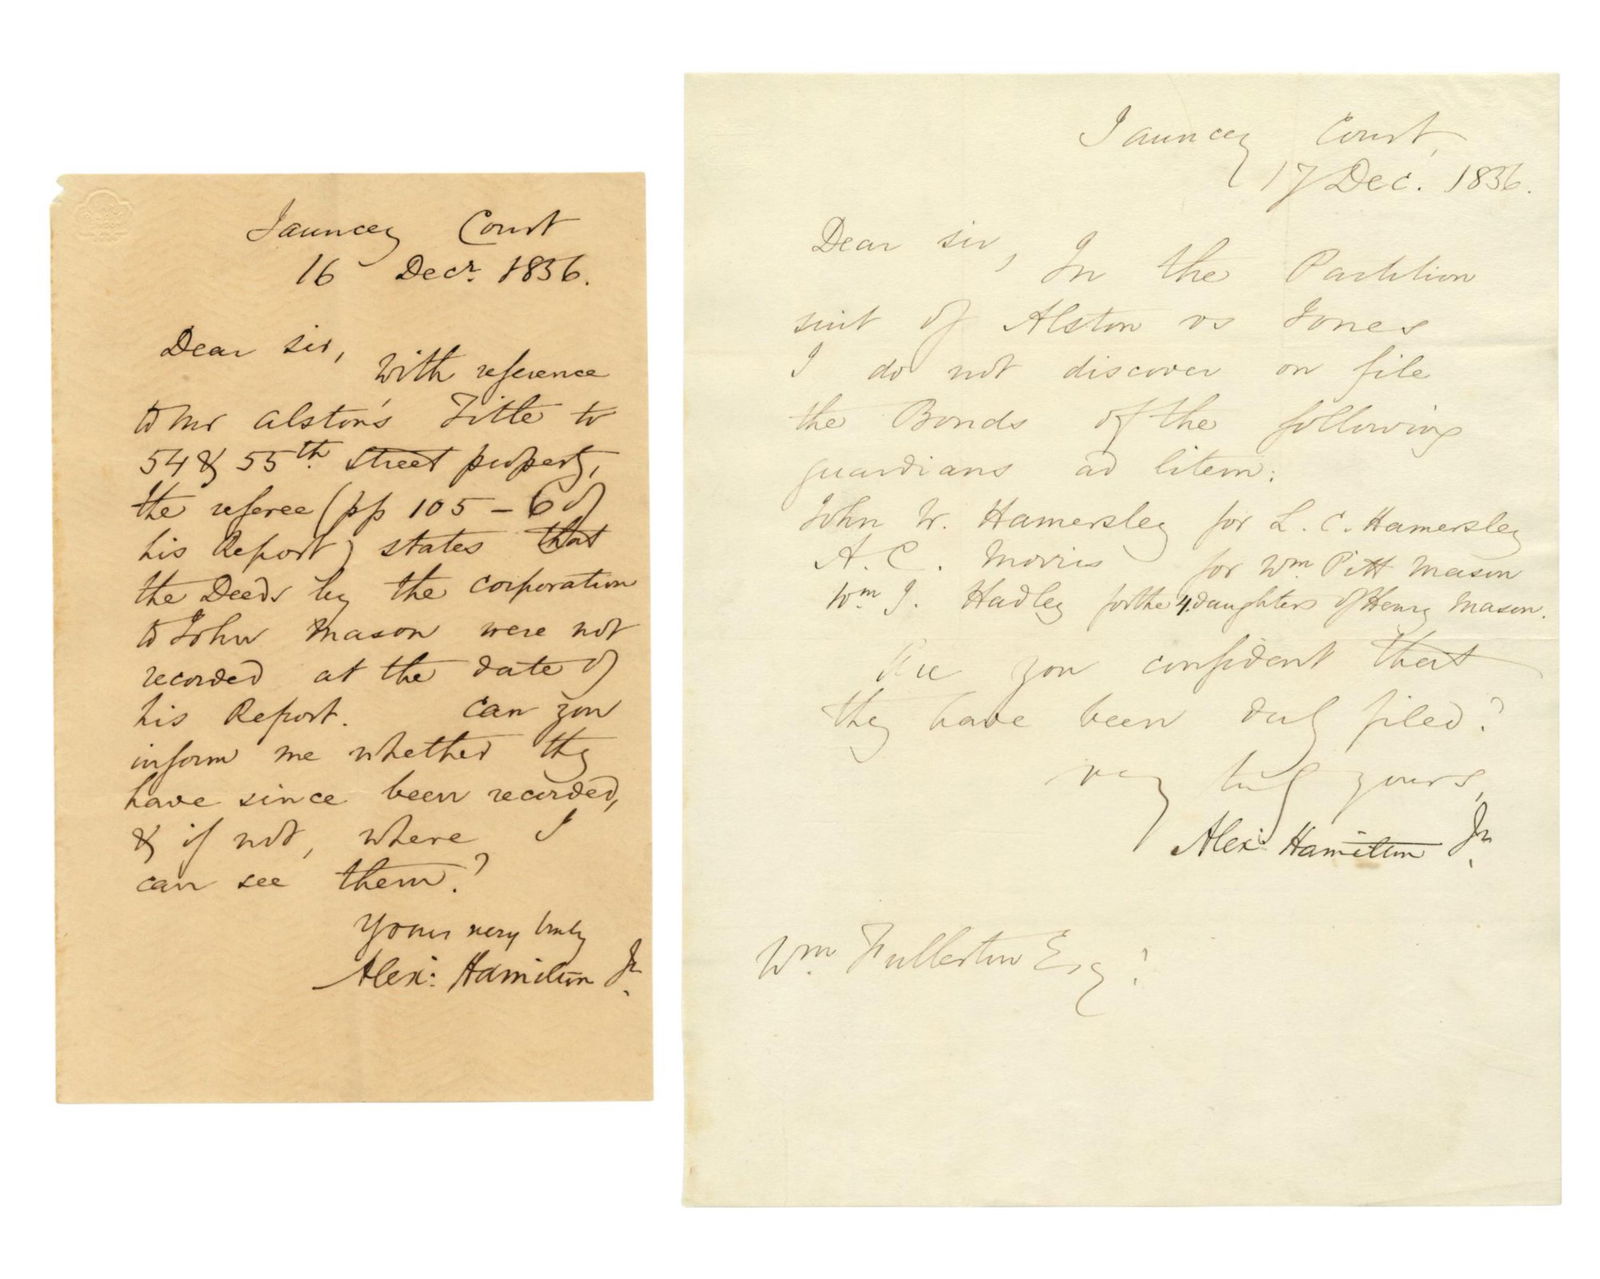 Jauncey Court
16 Decr. 1836.
Dear sir,
With reference
to Mr Alston's Title to
54 & 55th street property,
the referee (pp 105-6 of
his Report) states that
the Deeds by the corporation
to John Mason were not
recorded at the date of
his Report. Can you
inform me whether they
have since been recorded,
& if not, where I
can see them?
Yours very truly
Alexr: Hamilton Jr.
Jauncey Court,
17 Dec. 1836.
Dear sir, In the Partition
suit of Alston vs Jones
I do not discover on file
the Bonds of the following
guardians ad litem:
John W. Hamersley for L. C. Hamersley
A. C. Morris for Wm Pitt Mason
Wm J. Hadley for the 4 daughters of Henry Mason.
Are you confident that
they have been duly filed?
very truly yours,
Alexr: Hamilton Jr.
Wm. Fullerton Esq: